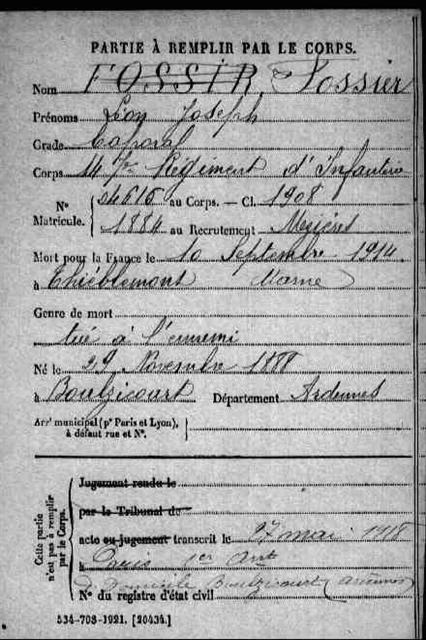 PARTIE À REMPLIR PAR LE CORPS.
Nom FOSSIR. Fossier
Prénoms Léon Joseph
Grade Caporal
Corps 147e Régiment d'Infanterie
N° Matricule. 04615 au Corps. — Cl. 1908
1884 au Recrutement Mézières
Mort pour la France le 10 Septembre 1914
à Thiéblemont Marne
Genre de mort
tué à l'ennemi
Né le 29 Novembre 1888
à Boulzicourt Département Ardennes
Arrt municipal (pr Paris et Lyon), à défaut rue et N°.
Cette partie n'est pas à remplir par le Corps.
Jugement rendu le
par le Tribunal de
acte ou jugement transcrit le 27 mai 1918
à Paris 1er Arrt
D. Domicile Boulzicourt (Ardennes)
N° du registre d'état civil
534-708-1921. [20434.]